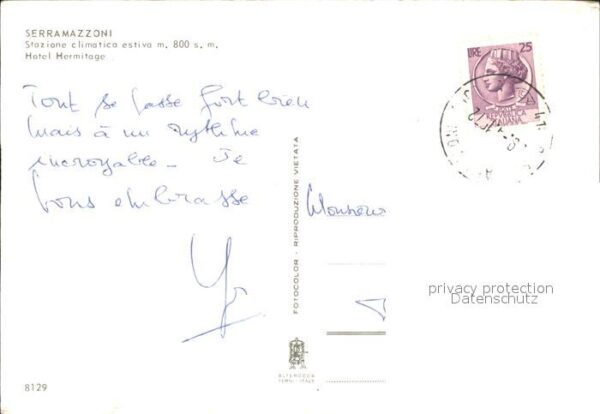 SERRAMAZZONI
Stazione climatica estiva m. 800 s. m.
Hotel Hermitage
LIRE 25
REPVBBLICA
ITALIANA
Tout se passe fort bien
mais à un rythme
incroyable - Je
vous embrasse
Monsieur
FOTOCOLOR - RIPRODUZIONE VIETATA
privacy protection
Datenschutz
ALTEROCCA
TERNI - ITALY
8129